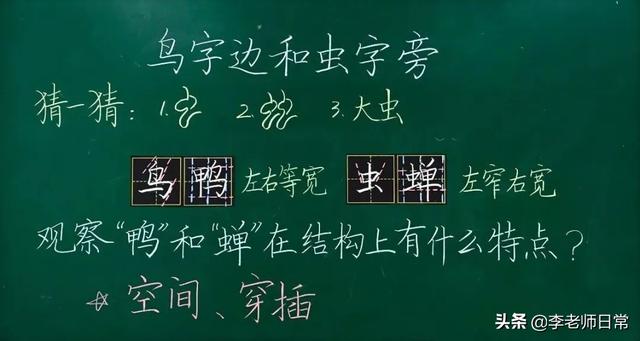 鸟字边和虫字旁
猜一猜：1. 2. 3.大虫
鸟 鸭 左右等宽 虫 蝉 左窄右宽
观察“鸭”和“蝉”在结构上有什么特点？
☆空间、穿插
头条 @李老师日常